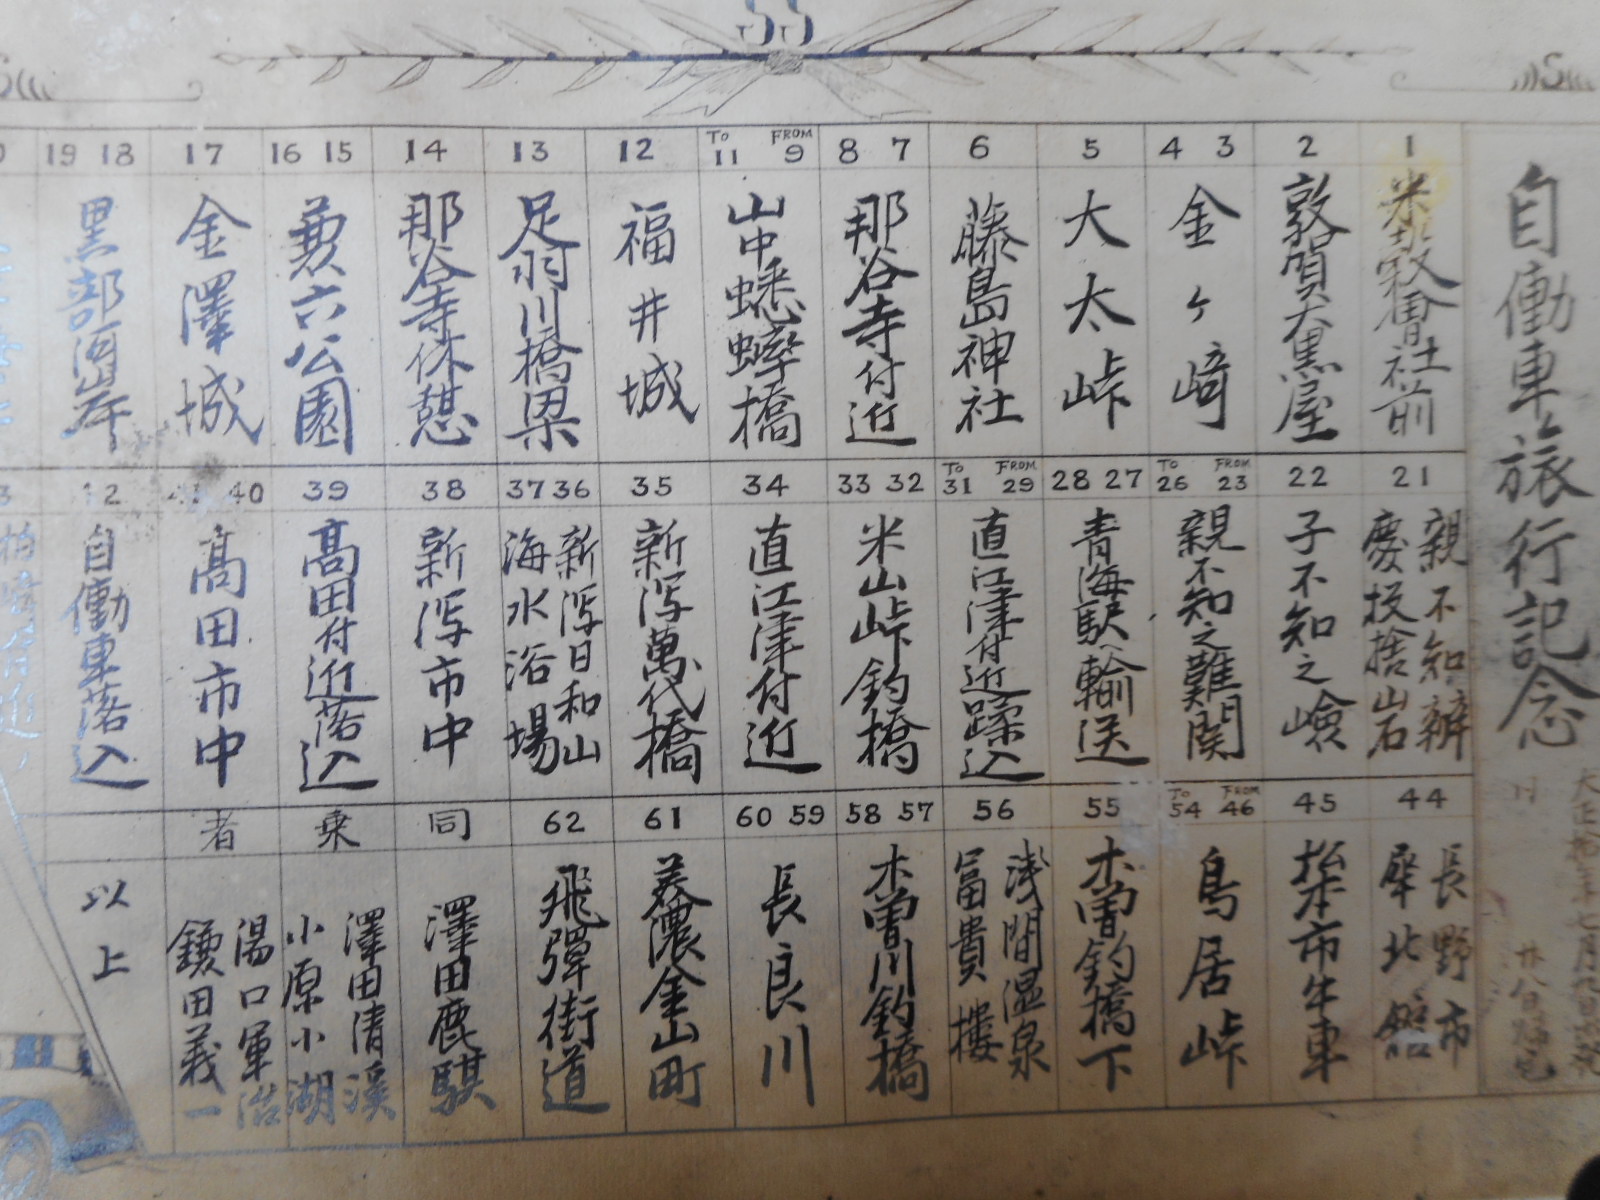 自働車旅行記念
1
米穀會社前
2
敦賀大黒屋
4 3
金ヶ崎
5
大太峠
6
藤島神社
8 7
那谷寺付近
TO 11 FROM 9
山中蟋蟀橋
12
福井城
13
足羽川橋梁
14
那谷寺休憩
16 15
兼六公園
17
金澤城
19 18
黒部河岸
21
親不知辨
慶投捨岩
22
子不知之嶮
TO 26 FROM 23
親不知之難関
28 27
青海駅輸送
TO 31 FROM 29
直江津付近蹂込
33 32
米山峠釣橋
34
直江津付近
35
新潟萬代橋
37 36
新潟日和山
海水浴場
38
新潟市中
39
高田付近落込
41 40
高田市中
42
自働車落込
44
長野市
犀北館
45
松本市牛車
TO 54 FROM 46
鳥居峠
55
木曽釣橋下
56
浅間温泉
富貴樓
58 57
木曽川釣橋
60 59
長良川
61
美濃金山町
62
飛彈街道
同乗者
澤田鹿騏
澤田清溪
小原小湖
湯口軍浩
鎌田義一
以上